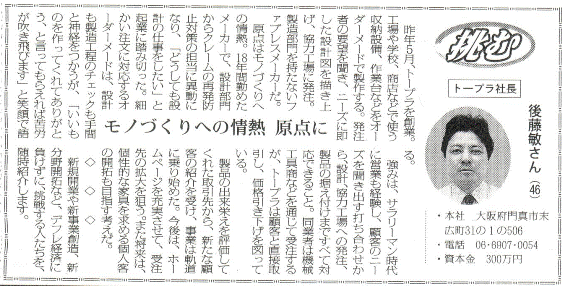 挑む
トープラ社長
後藤敏さん(46)
・本社 大阪府門真市末
広町31の1の506
・電話 06-6907-0054
・資本金 300万円
モノづくりへの情熱 原点に
昨年5月、トープラを創業。
工場や学校、商店などで使う
収納設備、作業台などをオー
ダーメードで製作する。発注
者の要望を聞き、ニーズに即
した設計図を描き上
げ、協力工場に発注。
製造部門を持たないフ
ァブレスメーカーだ。
原点はモノづくりへ
の情熱。18年間勤めた
メーカーで、設計部門
からクレームの再発防
止対策の担当に異動に
なり、「どうしても設
計の仕事をしたい」と
起業に踏み切った。細
かい注文に対応するオ
ーダーメードは、設計
も製造工程のチェックも手間
と神経をつかうが、「いいも
のを作ってくれてありがと
う、と言ってもらえれば苦労
が吹き飛びます」と笑顔で語
る。
強みは、サラリーマン時代
に営業も経験し、顧客のニー
ズを聞き出す打ち合わせか
ら、設計、協力工場への発注、
製品の据え付けまですべて対
応できること。同業者は機械
工具商などを通じて受注する
が、トープラは顧客と直接取
引し、価格引き下げを図って
いる。
製品の出来栄えを評価して
くれた取引先から、新たな顧
客の紹介を受け、事業は軌道
に乗り始めた。今後は、ホー
ムページを充実させて、受注
先の拡大を狙う。また将来は、
個性的な家具を求める個人客
の開拓も目指す考えだ。
◇ ◇ ◇
新規開業や新事業創造、新
分野開拓など、デフレ経済に
負けずに、挑戦する人たちを、
随時紹介します。